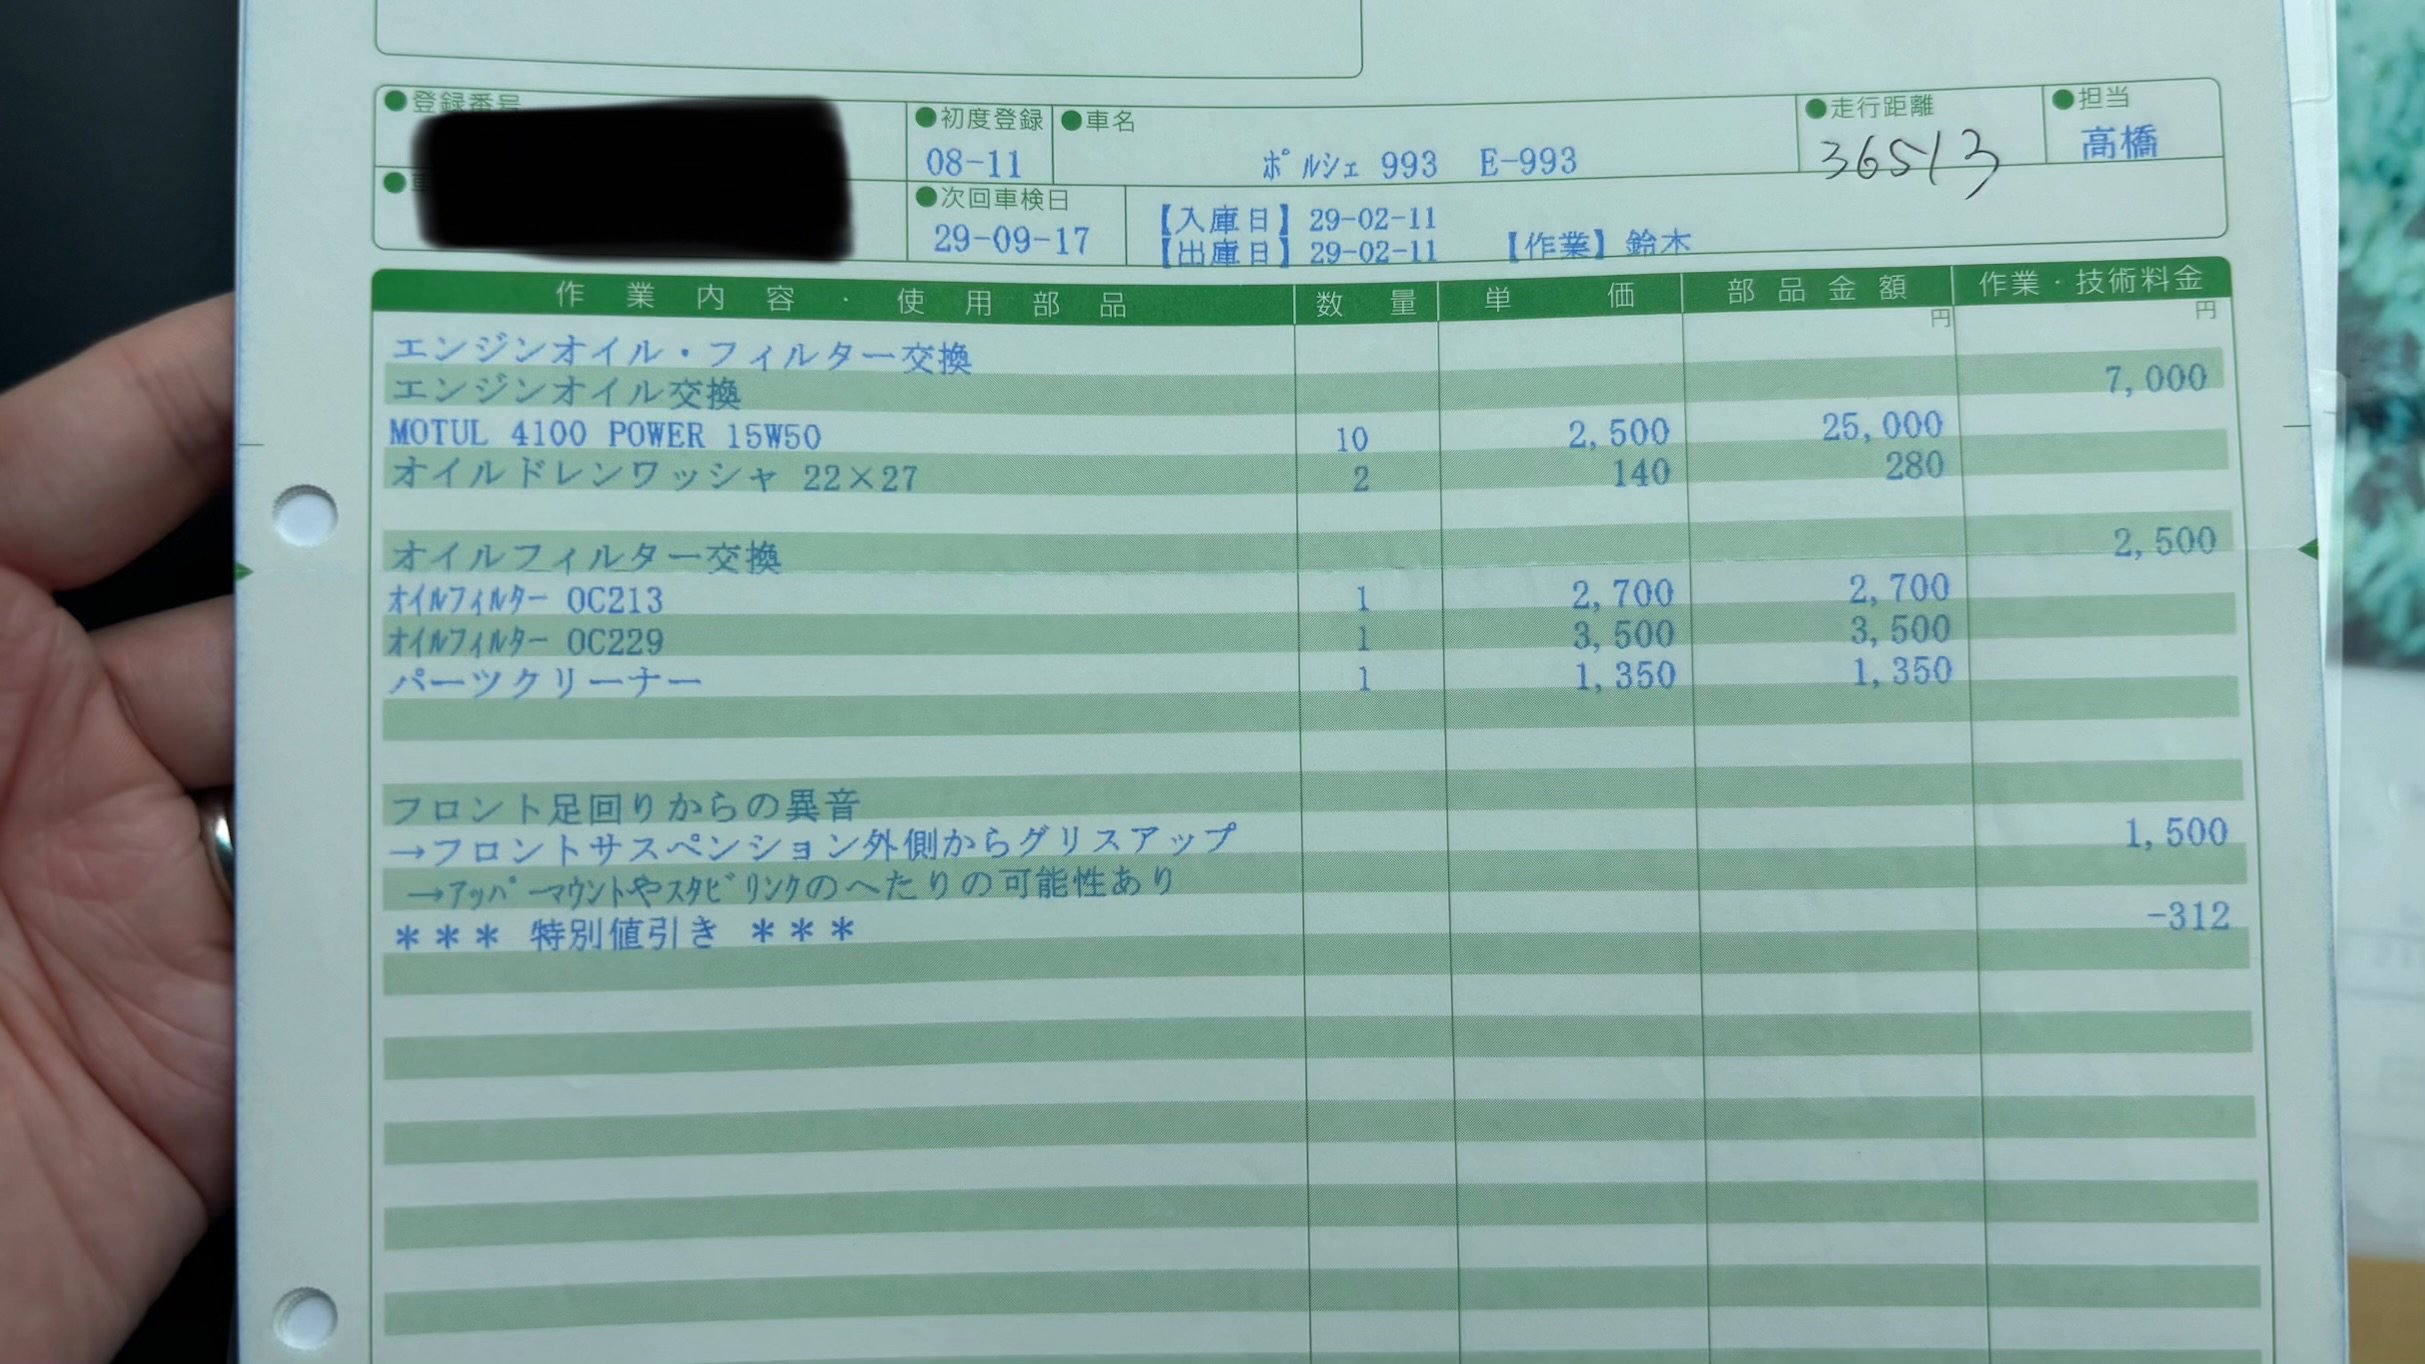 ●登録番号
●初度登録
08-11
●車名
ﾎﾟﾙｼｪ 993 E-993
●走行距離
36513
●担当
高橋
●次回車検日
29-09-17
【入庫日】29-02-11
【出庫日】29-02-11 【作業】鈴木
作業内容・使用部品 数量 単価 部品金額 作業・技術料金
円 円
エンジンオイル・フィルター交換
エンジンオイル交換 7,000
MOTUL 4100 POWER 15W50 10 2,500 25,000
オイルドレンワッシャ 22×27 2 140 280
オイルフィルター交換 2,500
ｵｲﾙﾌｨﾙﾀｰ OC213 1 2,700 2,700
ｵｲﾙﾌｨﾙﾀｰ OC229 1 3,500 3,500
パーツクリーナー 1 1,350 1,350
フロント足回りからの異音
→フロントサスペンション外側からグリスアップ 1,500
→ｱｯﾊﾟｰﾏｳﾝﾄやｽﾀﾋﾞﾘﾝｸのへたりの可能性あり
＊＊＊ 特別値引き ＊＊＊ -312